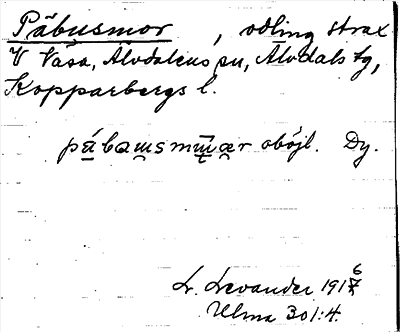 Påbusmor, odling strax
V Våsa, Älvdalens sn, Älvdals tg,
Kopparbergs l.
påbamsmɯær oböjl. Dy.
L. Levander 1916
Ulma 301:4.